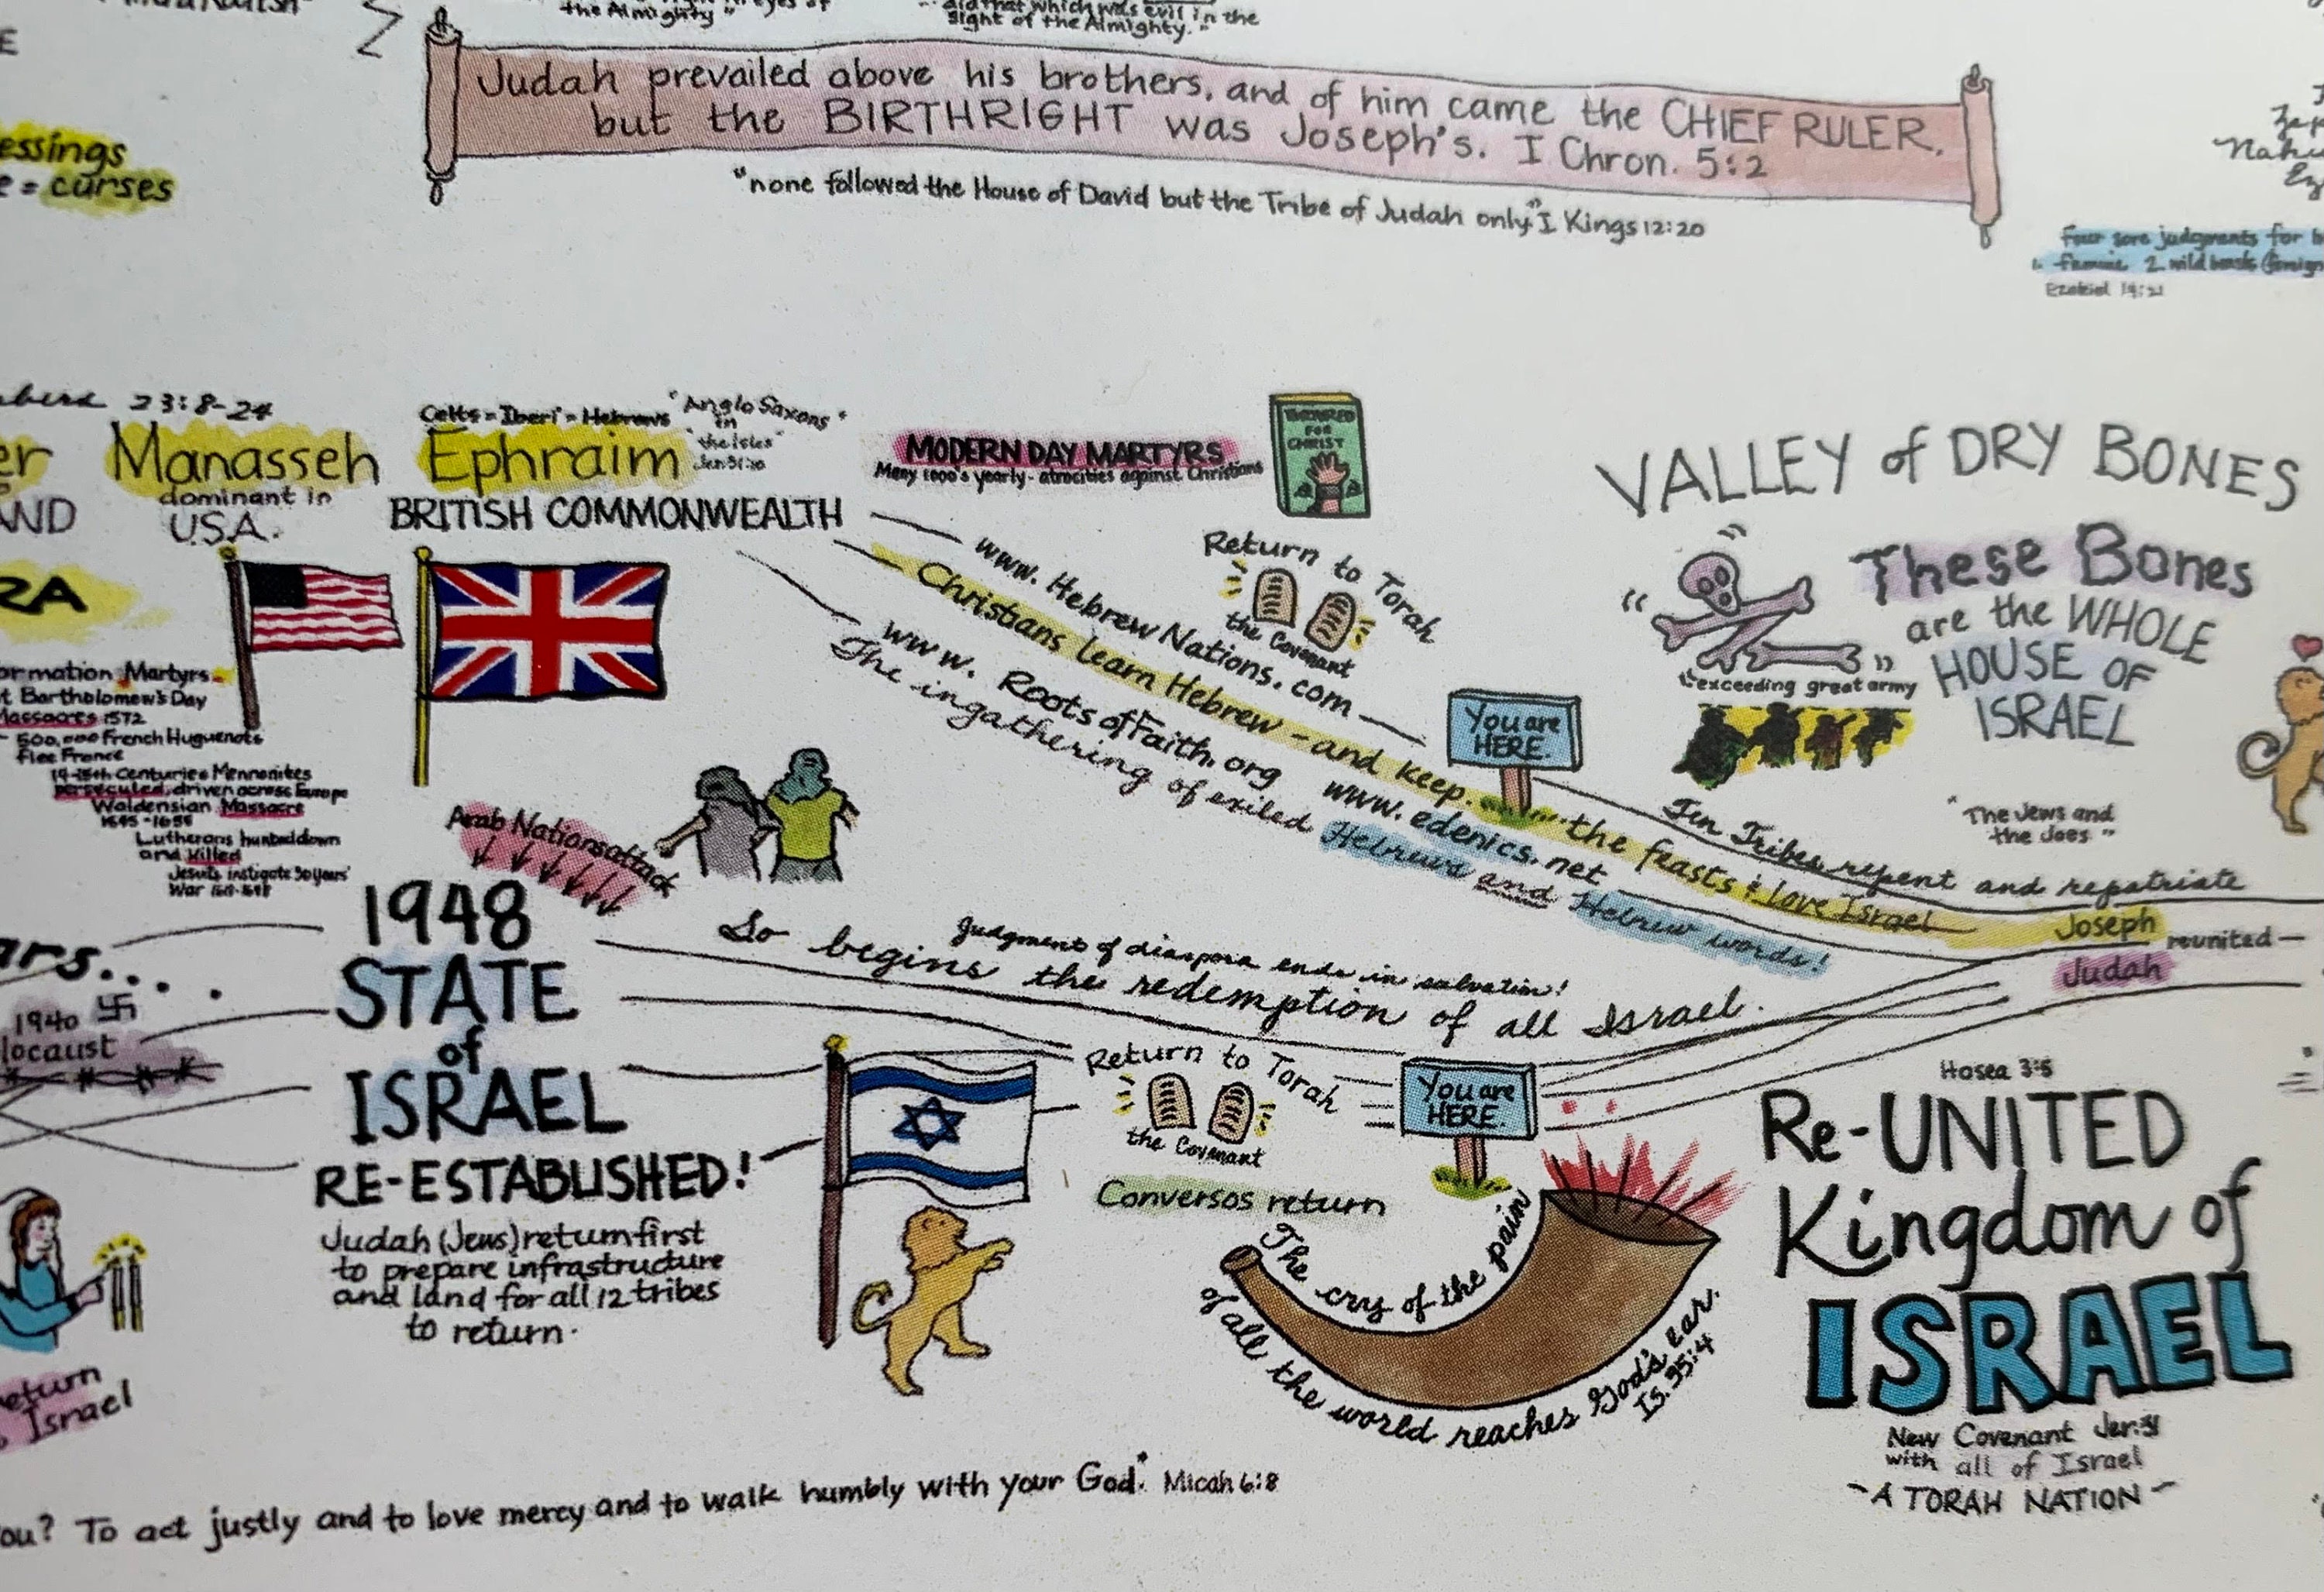 the Almighty"
did that which was evil in the
sight of the Almighty."
Judah prevailed above his brothers, and of him came the CHIEF RULER,
but the BIRTHRIGHT was Joseph's. I Chron. 5:2
"none followed the House of David but the Tribe of Judah only" I Kings 12:20
essings
= curses
Four sore judgments for
1. famine 2. wild beasts
Ezekiel 14:21
23:8-24
Manasseh
dominant in
U.S.A.
Celts = Iberi = Hebrews
"Anglo Saxons"
in
"the Isles"
Ephraim
BRITISH COMMONWEALTH
MODERN DAY MARTYRS
Many 1000's yearly - atrocities against Christians
FOR
CHRIST
VALLEY of DRY BONES
These Bones
are the WHOLE
HOUSE OF
ISRAEL
"exceeding great army"
Return to Torah
the Covenant
www.HebrewNations.com
Christians learn Hebrew - and keep... the feasts & love Israel
www.RootsofFaith.org www.edenics.net
The ingathering of exiled Hebrews and Hebrew words!
You are
HERE.
Ten Tribes repent and repatriate
"The Jews and
the does"
Joseph
Judah
reunited
ormation Martyrs
t Bartholomew's Day
Massacres 1572
500,000 French Huguenots
flee France
Centuries Mennonites
persecuted, driven across Europe
Waldensian Massacre
Lutherans hunted down
and killed
Jesuits instigate 30 years'
War
Arab Nations attack
1948
STATE
of
ISRAEL
RE-ESTABLISHED!
Judah (Jews) return first
to prepare infrastructure
and land for all 12 tribes
to return.
ars...
1940
locaust
Judgment of diaspora ends in salvation!
So begins the redemption of all Israel.
Return to Torah
the Covenant
Conversos return
You are
HERE.
The cry of the pain
of all the world reaches God's ear.
Is. 35:4
Hosea 3:5
Re-UNITED
Kingdom of
ISRAEL
New Covenant Jer:31
with all of Israel
~A TORAH NATION~
eturn
Israel
ou? To act justly and to love mercy and to walk humbly with your God." Micah 6:8